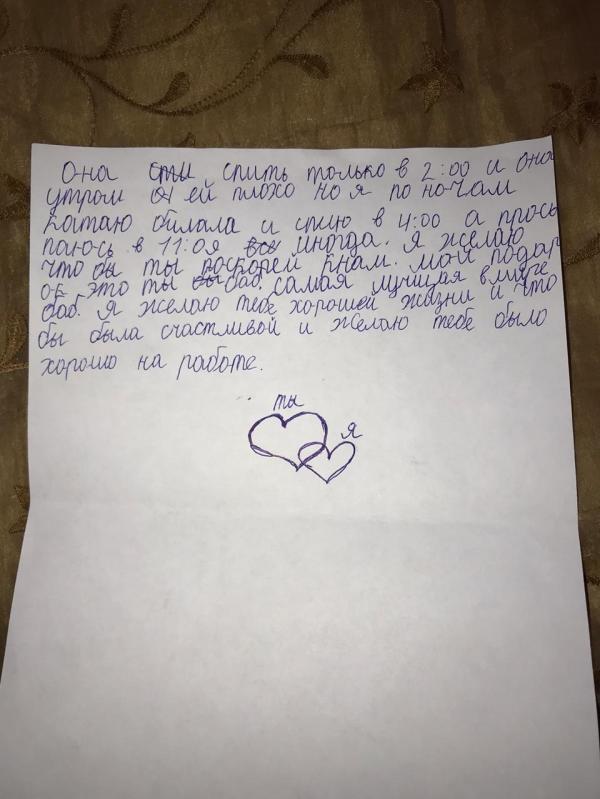 Она спить только в 2:00 и она
утром ей плохо но я по ночам
катаю билала и спию в 4:00 а просы
паюсь в 11:00 я иногда. Я желаю
что бы ты поскорей кнам. мой подар
ок это ты баб. самая лучшая в мире
баб. Я желаю тебе хорошей жизни и что
бы была счастливой и желаю тебе было
хорошо на работе.
ты
я